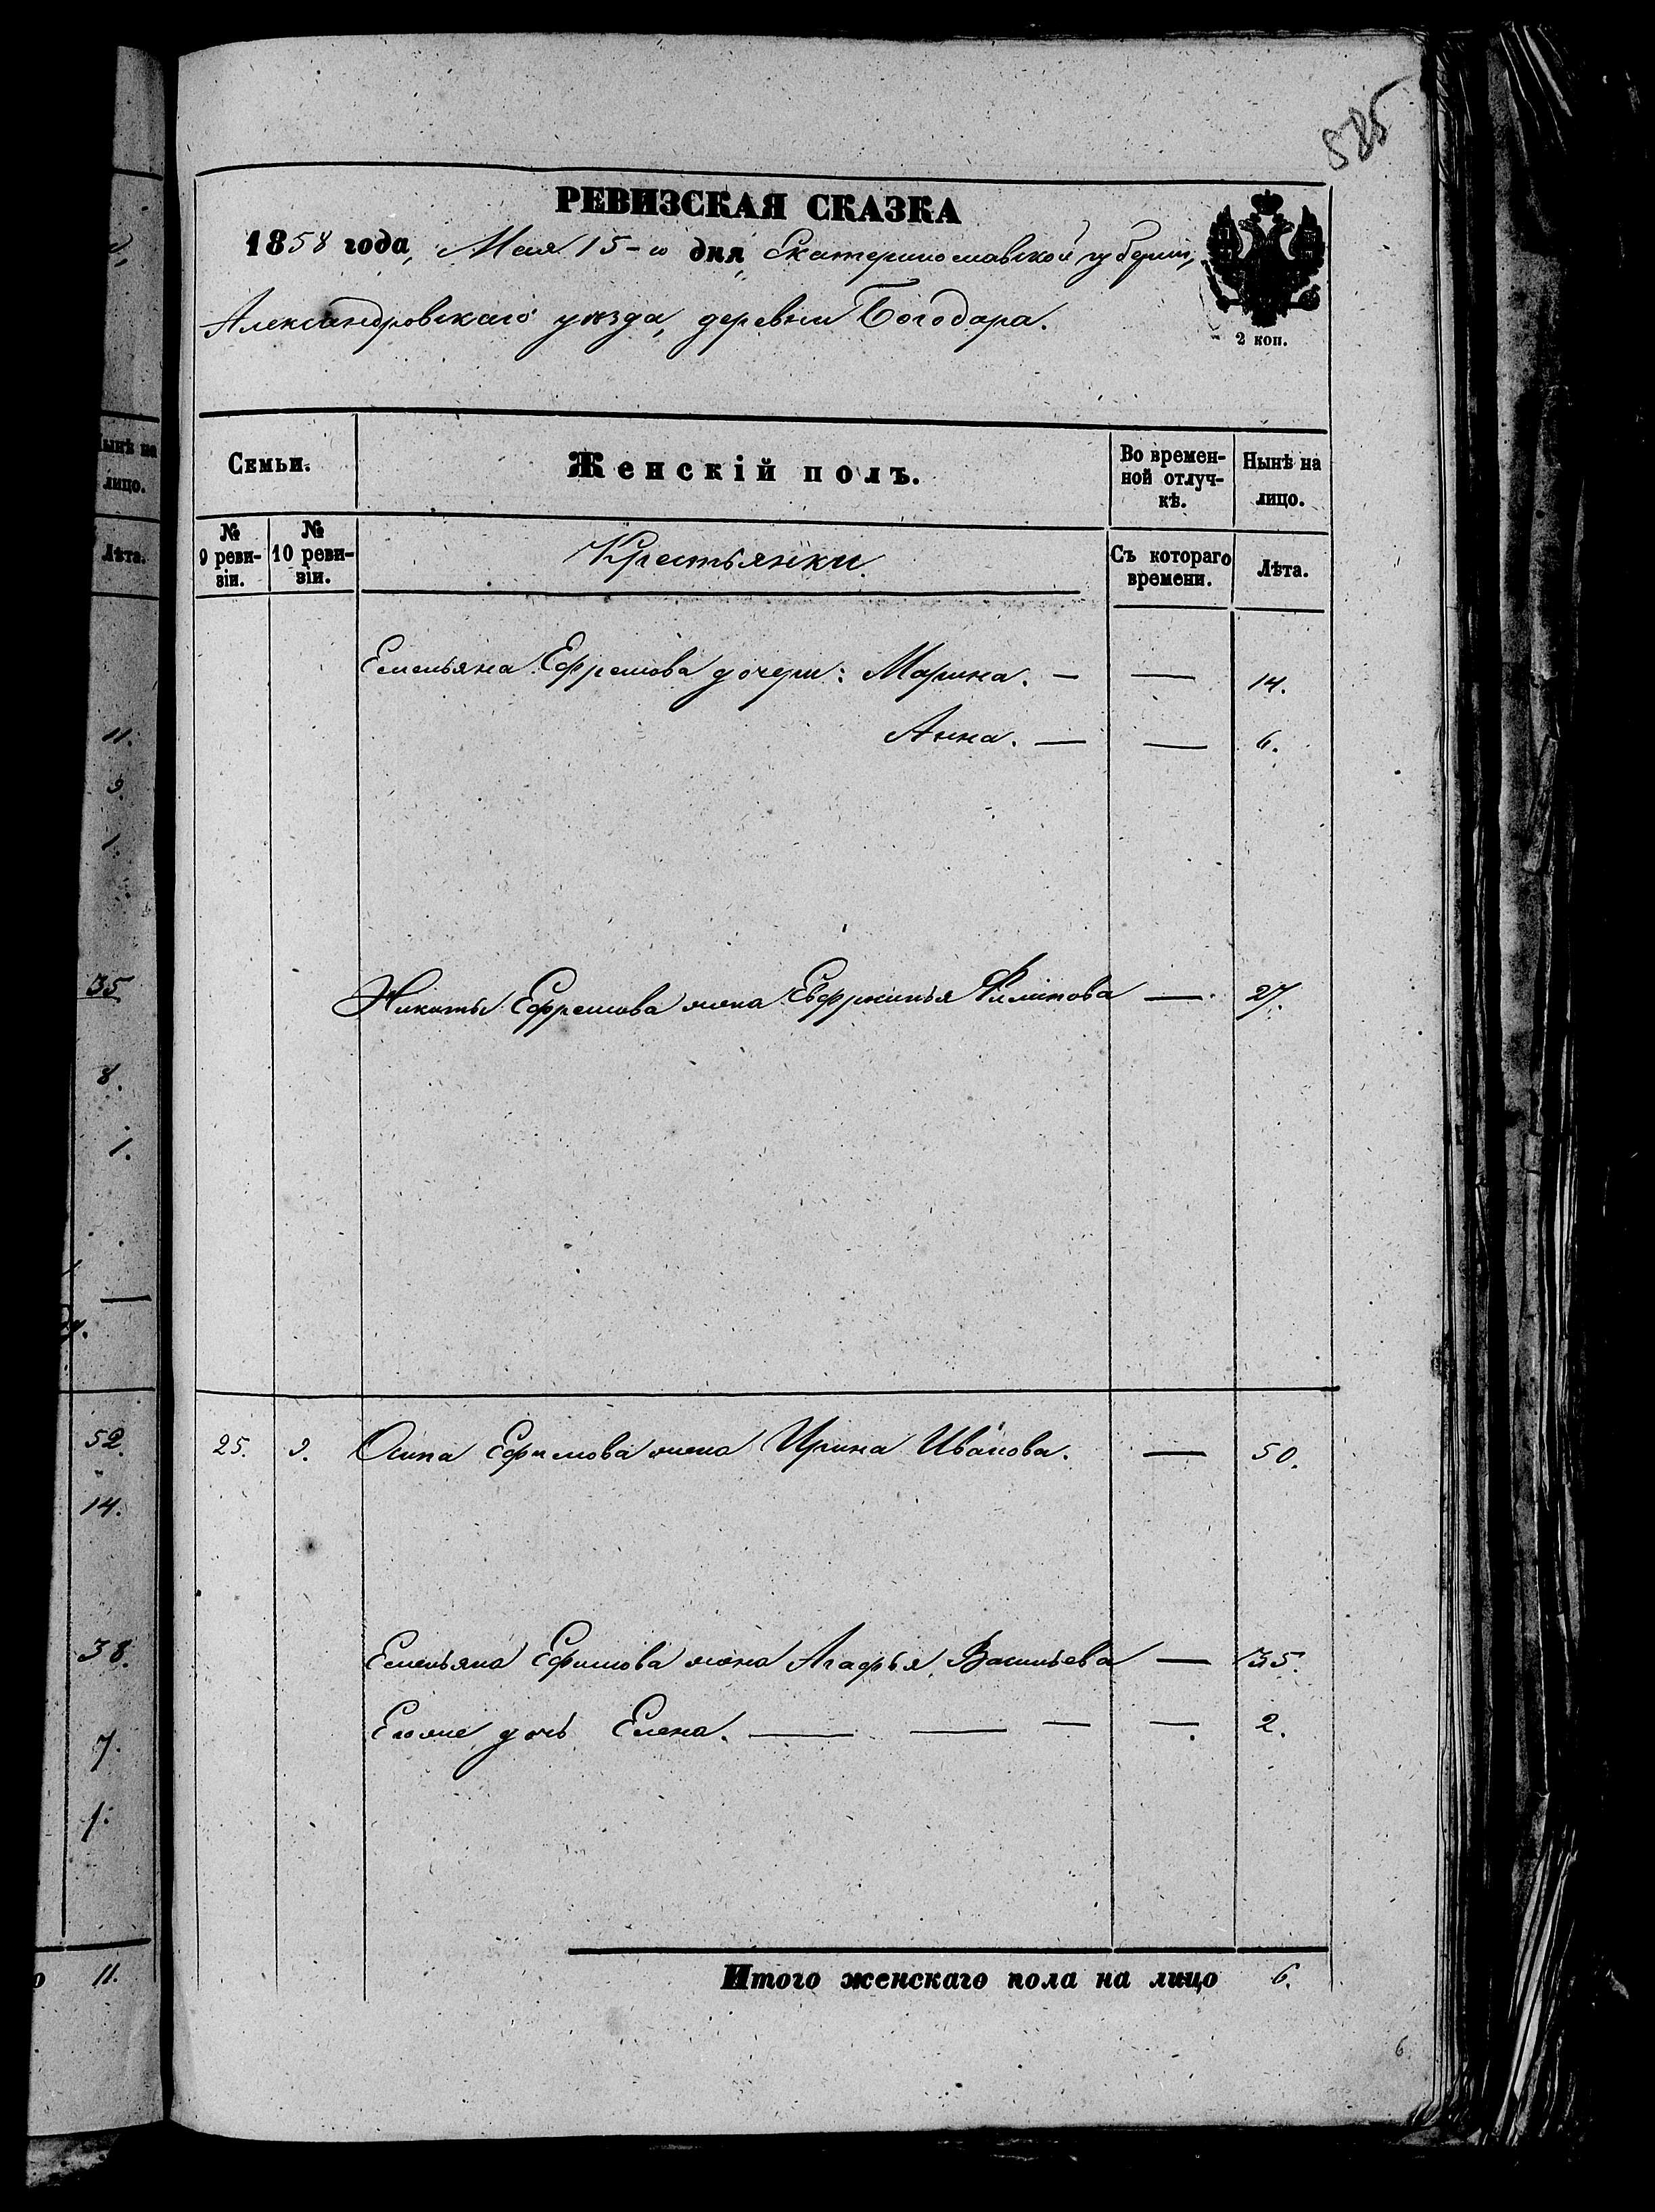 585
РЕВИЗСКАЯ СКАЗКА
1858 года, Мая 15-го дня, Екатеринославской губернии,
Александровскаго уѣзда, деревни Богодара.
2 коп.
Семьи. Женскій полъ. Во временной отлучкѣ. Нынѣ на лицо.
№ 9 ревизіи. № 10 ревизіи. Крестьянки Съ котораго времени. Лѣта.
Емельяна Ефремова дочери: Марина. — — 14.
Анна. — — 6.
Никиты Ефремова жена Евфросинья Филипова — 27.
25. 9. Осипа Ефимова жена Ирина Иванова. — 50.
Емельяна Ефимова жена Агафья Васильева — 35.
Егоже дочь Елена. — — — — 2.
Итого женскаго пола на лицо 6.
6
ынѣ на
лицо.
Лѣта.
11.
9.
1.
35
8.
1.
—
52.
14.
38.
7.
1.
о 11.